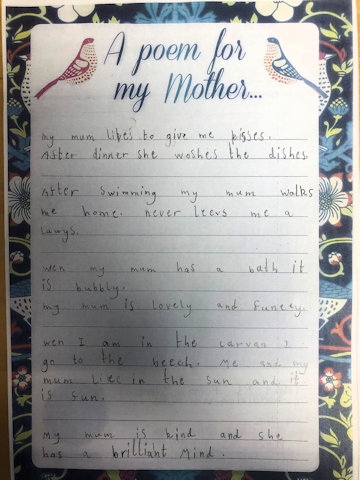 A poem for
my Mother...
my mum likes to give me kisses.
After dinner she woshes the dishes.
After swimming my mum walks
me home. never leevs me a
lawys.
wen my mum has a bath it
is bubbly.
my mum is lovely and funey.
wen I am in the carvan I
go to the beech. Me and my
mum lie in the sun and it
is fun.
My mum is kind and she
has a brilliant mind.